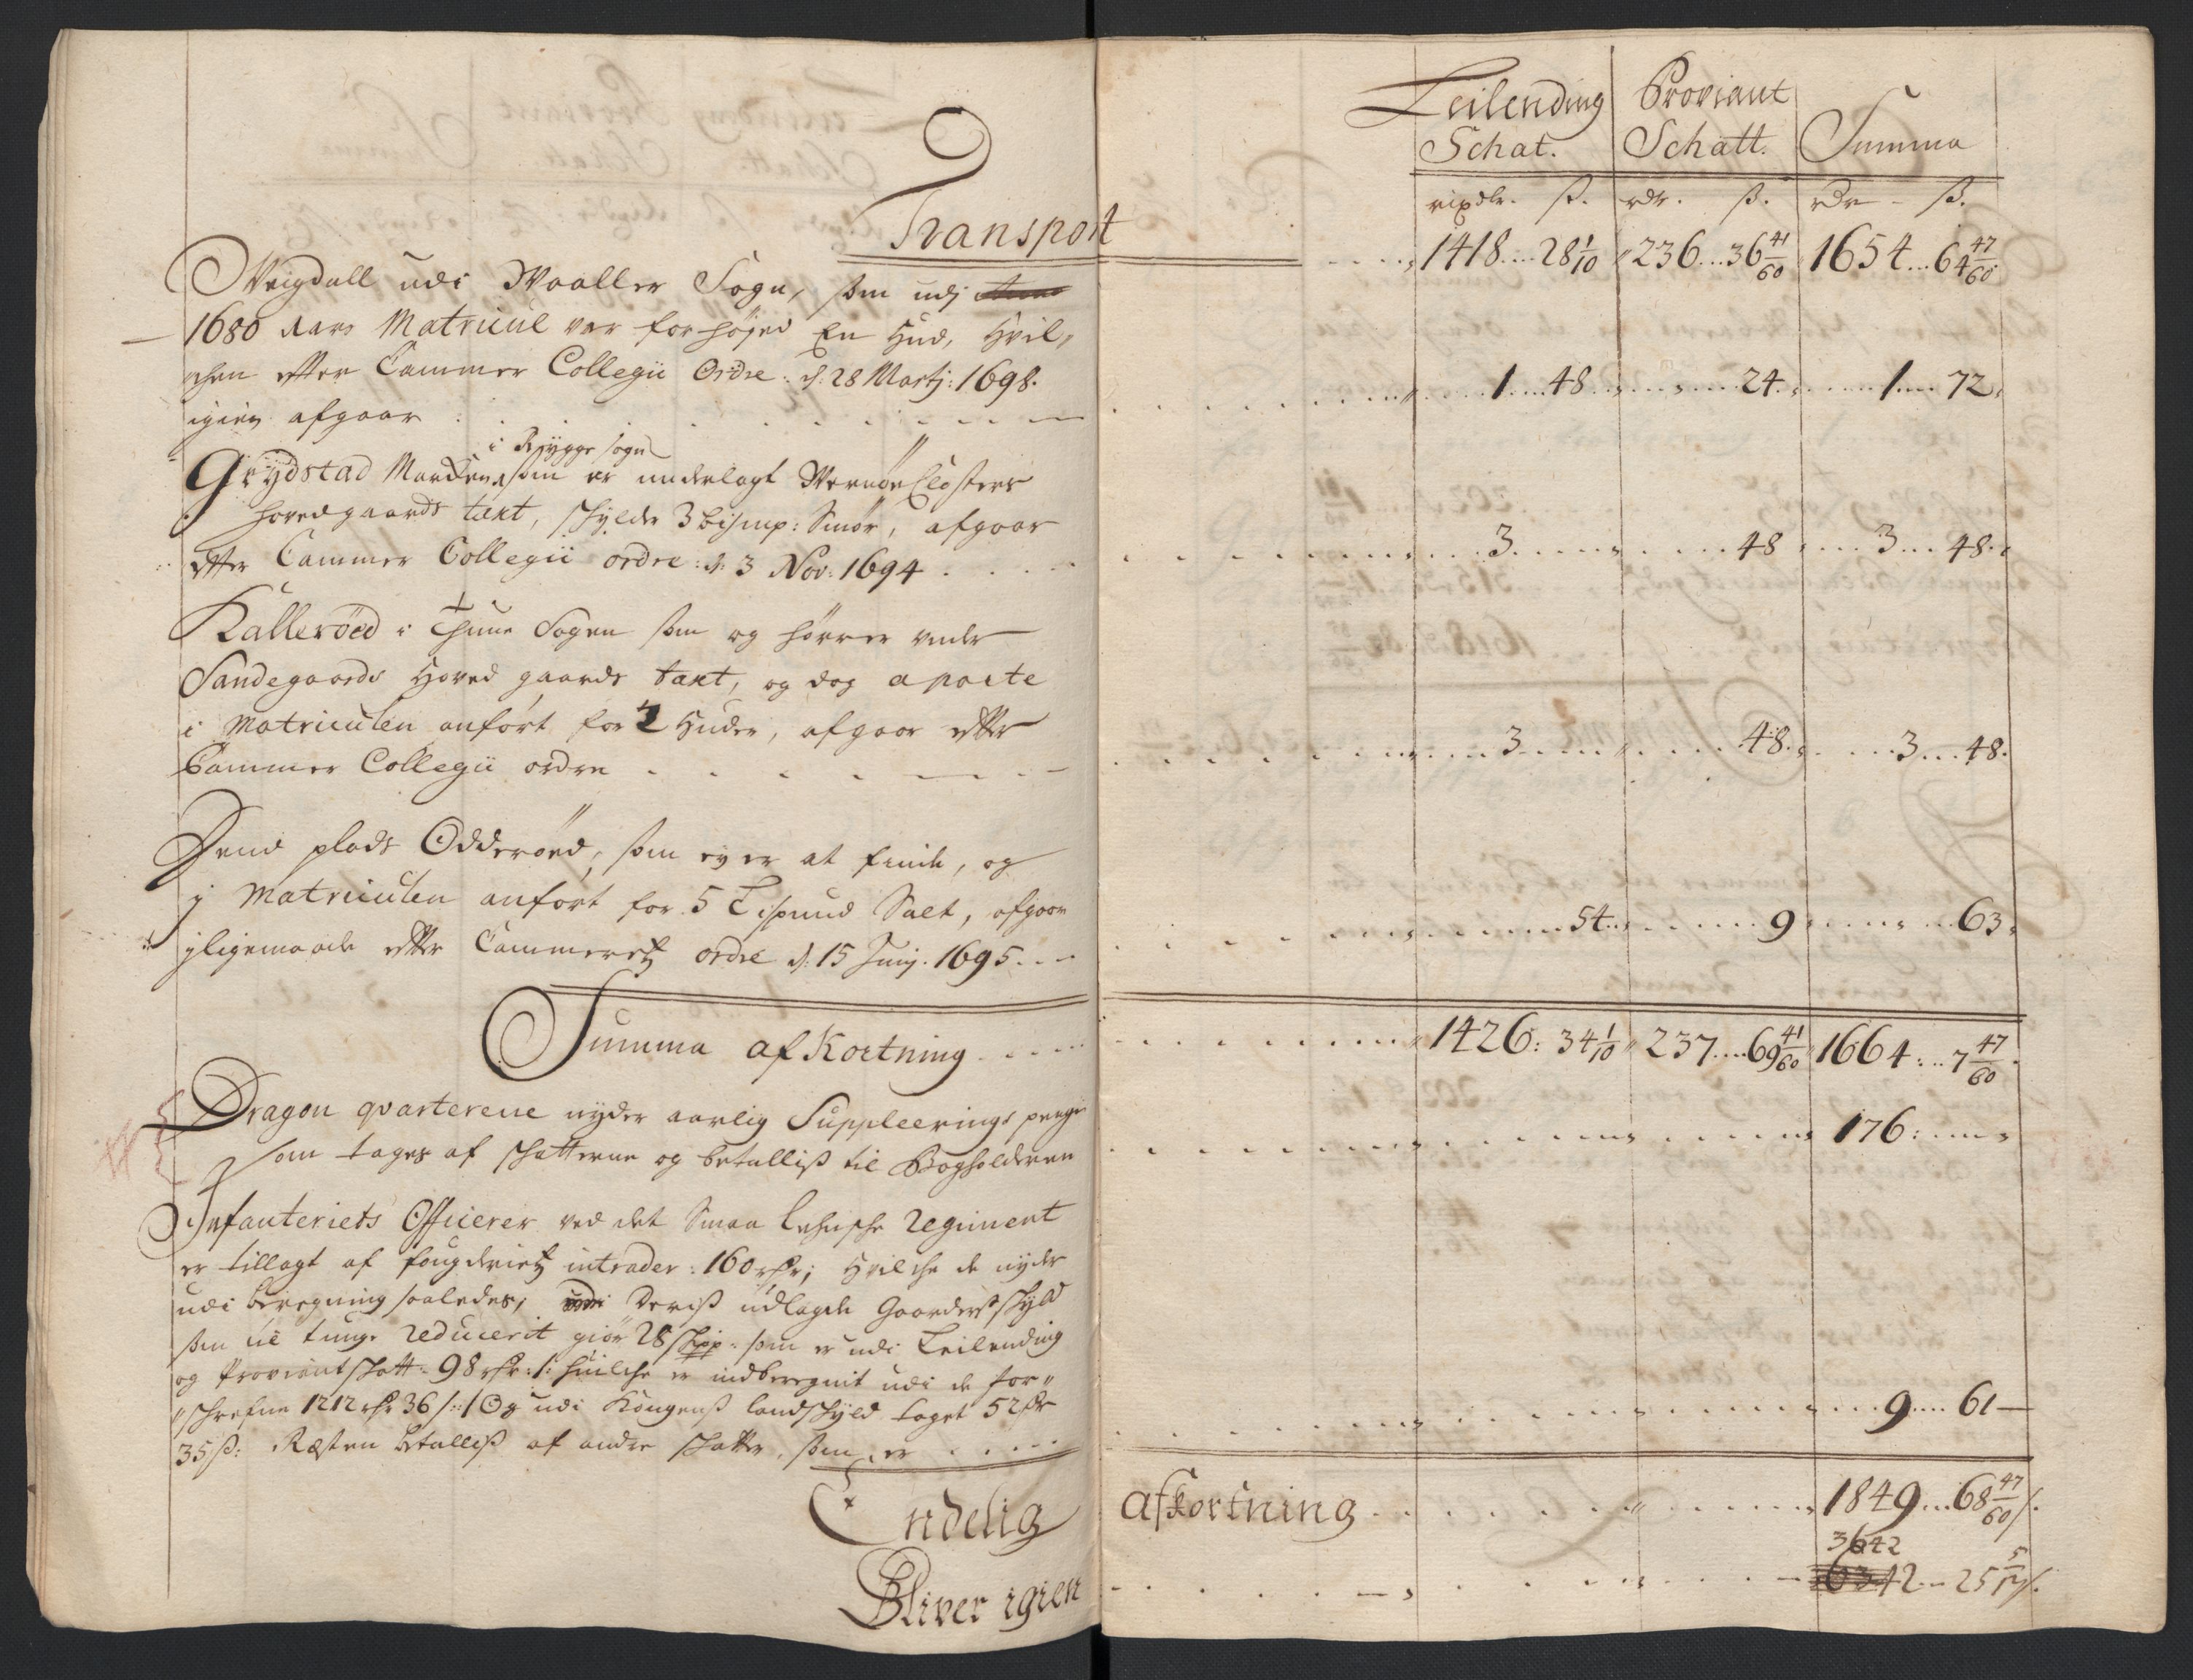 Leilending Proviant
Schat. Schatt. Summa
rixdr. ß. rdr. ß. rdr ß.
Transport 1418 28 1/10 236 36 41/60 1654 64 47/60
Weigdall udi Waaller Sogn, som udj
1680 Aars Matricul var forhøjed En Hud, Hvil,
chen effter Cammer Collegii Ordre d: 28 Martj: 1698.
igien afgaar 1 48 24 1 72
i Rygge sogn
Grydstad Marchen, som er underlagt Wernøe Closters
Hovedgaards taxt, schylder 3 bismp: Smør, afgaar
effter Cammer Collegii ordre: d: 3 Nov: 1694 3 48 3 48
Kallerøed i Thune Sogen som og hører under
Sandegaards Hoved gaards taxt, og dog aparte
i Matriculen anført for 2 Huder, afgaar effter
Cammer Collegii ordre 3 48 3 48.
Dend plads Odderøed, som ey er at finde, og
j Matriculen anført for 5 Lispund Salt, afgaar
jligemaade effter Cammeretz ordre d: 15 Junij 1695 54 9 63
Summa afkortning 1426: 34 1/10 237 69 41/60 1664: 7 47/60
Dragon qvarterene nyder aarlig Suppleerings penge
som tages af schatterne og betalliß til Bogholderen 176:
Infanteriets Officerer ved det Smaa Lehnsche Regiment
er tillagt af fougderietz intrader: 160 rdr; Hvilche de nyder
udi beregning saaledes, Deriß udlagde Gaarders schyld
som til tunge reducerit giør 28 schpp: som er udi Leilending
og Proviantschatt: 98 rdr: /: huilche er indberegnit udi de for„
„schrefne 1212 rdr 36 /: Og udi Kongenß landschyld taget 52 rdr
35 ß: Resten betalliß af andre schatter, som er 9 61
Endelig afkortning 1849 68 47/60 /.
3642
Bliver igien 25 5/12 /.